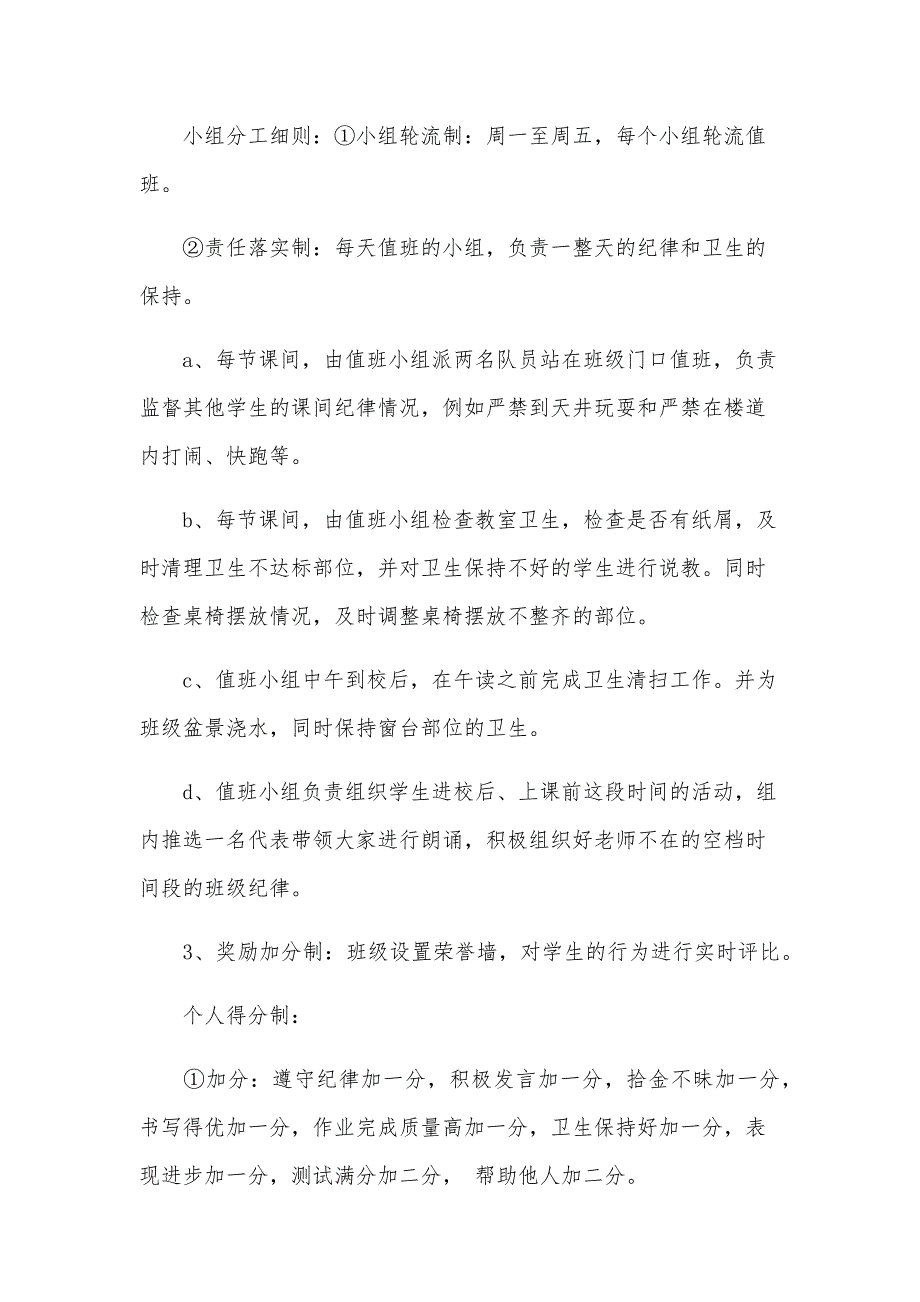 小组分工细则：①小组轮流制：周一至周五，每个小组轮流值
班。
②责任落实制：每天值班的小组，负责一整天的纪律和卫生的
保持。
a、每节课间，由值班小组派两名队员站在班级门口值班，负责
监督其他学生的课间纪律情况，例如严禁到天井玩耍和严禁在楼道
内打闹、快跑等。
b、每节课间，由值班小组检查教室卫生，检查是否有纸屑，及
时清理卫生不达标部位，并对卫生保持不好的学生进行说教。同时
检查桌椅摆放情况，及时调整桌椅摆放不整齐的部位。
c、值班小组中午到校后，在午读之前完成卫生清扫工作。并为
班级盆景浇水，同时保持窗台部位的卫生。
d、值班小组负责组织学生进校后、上课前这段时间的活动，组
内推选一名代表带领大家进行朗诵，积极组织好老师不在的空档时
间段的班级纪律。
3、奖励加分制：班级设置荣誉墙，对学生的行为进行实时评比。
个人得分制：
①加分：遵守纪律加一分，积极发言加一分，拾金不昧加一分，
书写得优加一分，作业完成质量高加一分，卫生保持好加一分，表
现进步加一分，测试满分加二分， 帮助他人加二分。